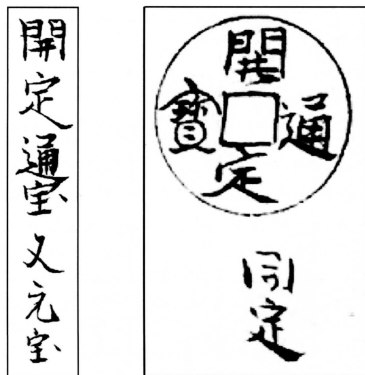 開定通宝又元宝
開定通寶
同定